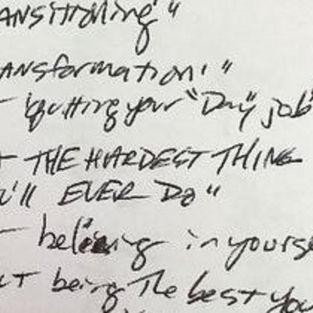 ANSITIONING"
ANSFORMATION!"
- quitting your "Day" job
THE HARDEST THING
U'll EVER DO"
- believing in yourse
UT being The best you